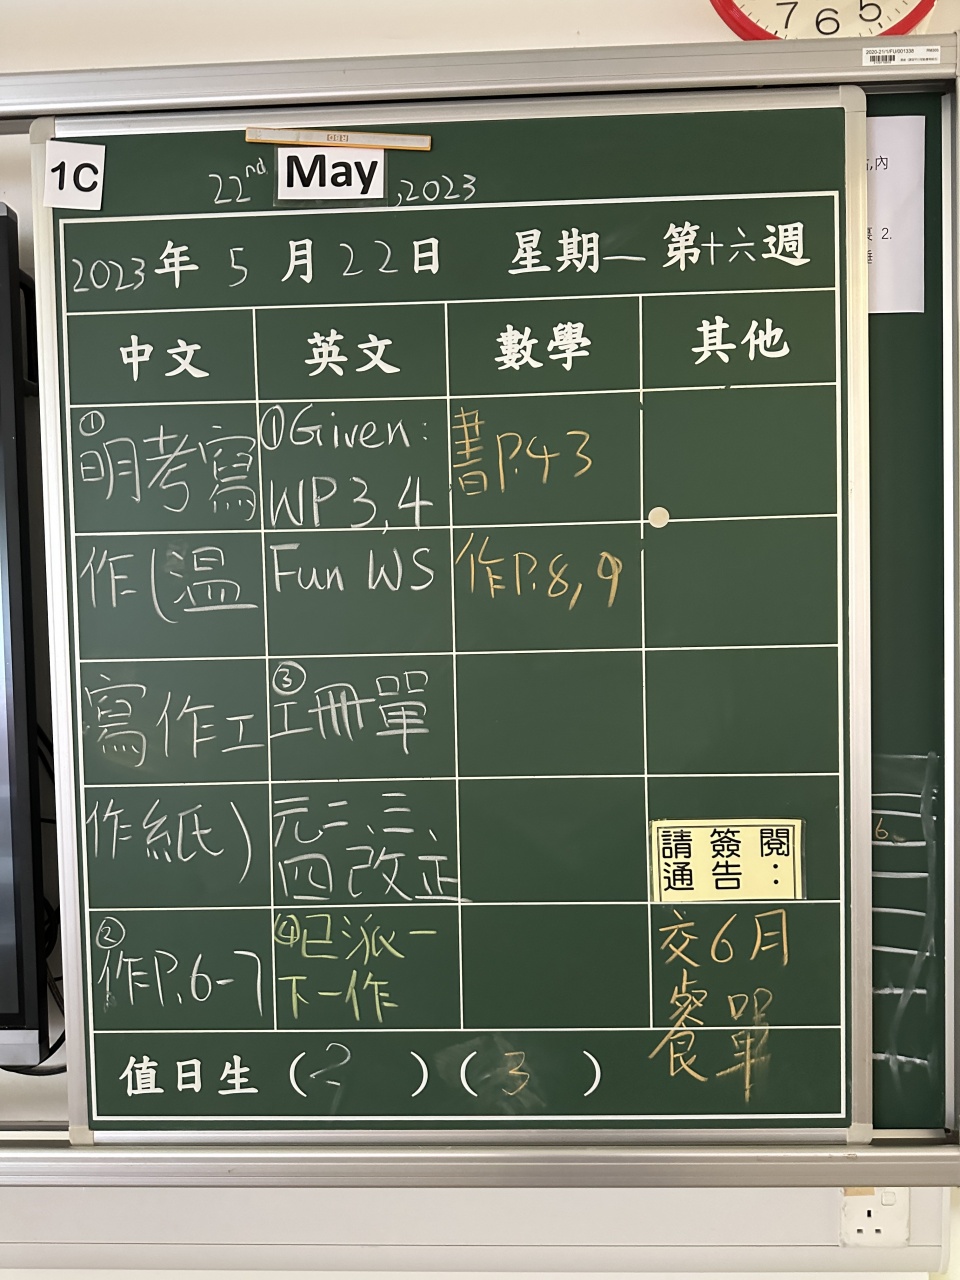 7 6 5
2020-21/1/FU/001338
1C
22nd May, 2023
2023年 5 月 22日 星期一 第十六週
中文 英文 數學 其他
①明考寫
作(溫
寫作工
作紙)
②作P.6-7
①Given:
WP3,4
Fun WS
③工冊單
元二、三、
四改正
④已派一
下一作
書P.43
作P.8,9
請簽閱
通告:
交6月
餐單
值日生 (2) (3)
,內
2.
6